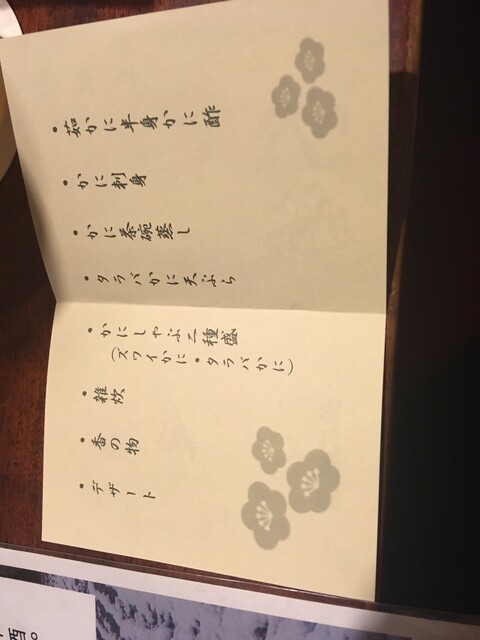 ・茹かに半身かに酢
・かに刺身
・かに茶碗蒸し
・タラバかに天ぷら
・かにしゃぶ二種盛
(ズワイかに・タラバかに)
・雑炊
・香の物
・デザート
酒。